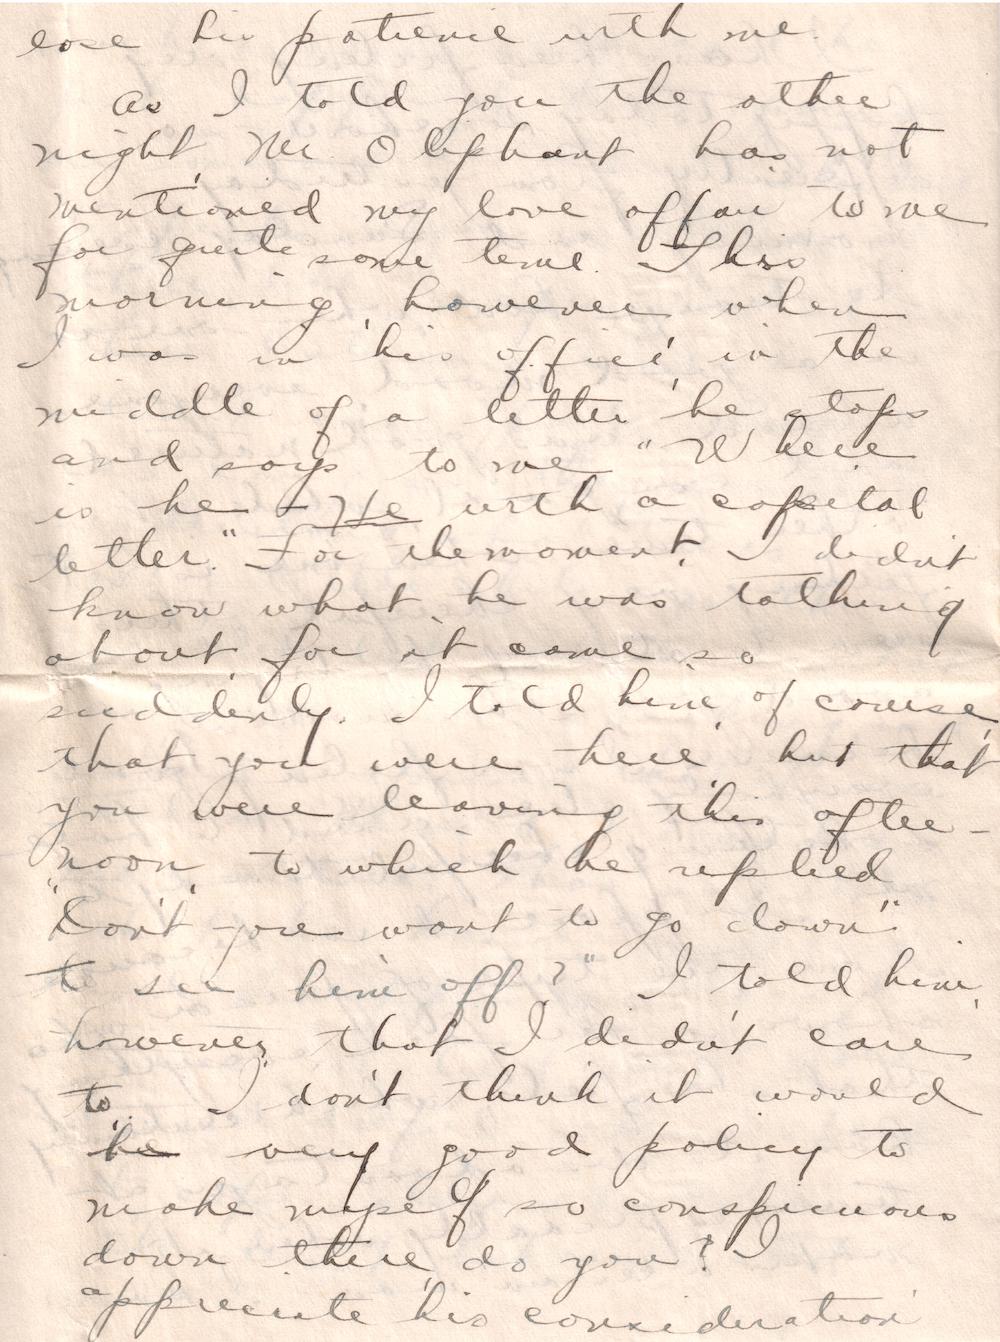 lose his patience with me.
As I told you the other
night, Mr. Oliphant has not
mentioned my love affair to me
for quite some time. This
morning, however, when
I was in his office, in the
middle of a letter he stops
and says to me "Where
is he - He with a capital
letter." For the moment, I didn't
know what he was talking
about for it came so
suddenly. I told him, of course,
that you were here, but that
you were leaving this after-
noon, to which he replied
"Don't you want to go down"
to see him off?" I told him,
however, that I didn't care
to. I don't think it would
be very good policy to
make myself so conspicuous
down there, do you? I
appreciate his consideration